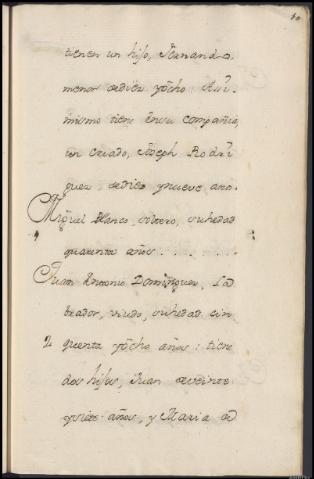 tienen un hijo, Fernando
menor de diez y ocho Assi
mismo tiene en su compañia
un criado, Joseph Rodri
guez de diez y nueve años
Miguel Blanco, su edad
quarenta años . . . .
Juan Antonio Dominguez, La
brador, viudo, su edad cin
2 quenta y ocho años: tiene
dos hijos, Juan de veinte
y siete años, y Maria de